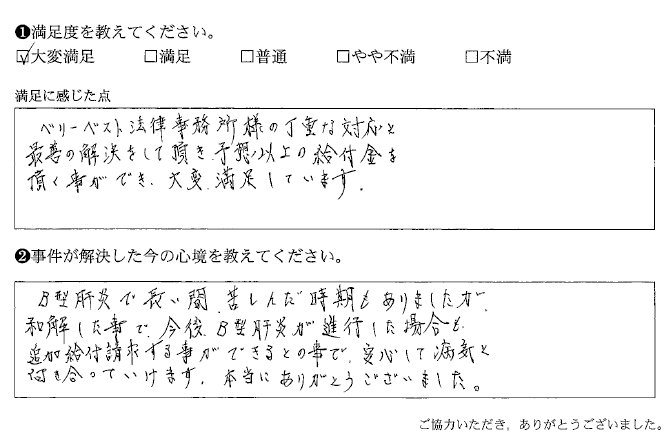 ❶満足度を教えてください。
☑大変満足 □満足 □普通 □やや不満 □不満
満足に感じた点
ベリーベスト法律事務所様の丁重な対応と
最善の解決をして頂き予想以上の給付金を
頂く事ができ、大変満足しています。
❷事件が解決した今の心境を教えてください。
B型肝炎で長い間、苦しんだ時期もありましたが、
和解した事で、今後、B型肝炎が進行した場合も、
追加給付請求する事ができるとの事で、安心して病気と
付き合っていけます。本当にありがとうございました。
ご協力いただき，ありがとうございました。